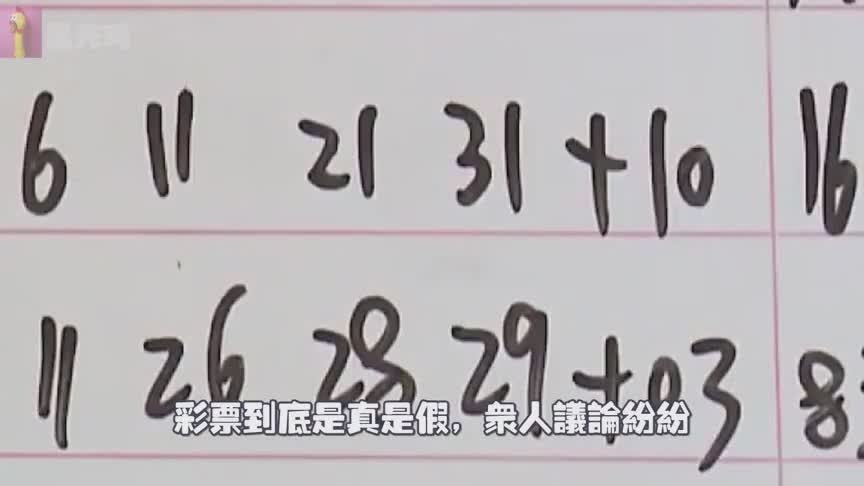 6 11 21 31 +10 16
11 26 28 29 +03 8
彩票到底是真是假，衆人議論紛紛